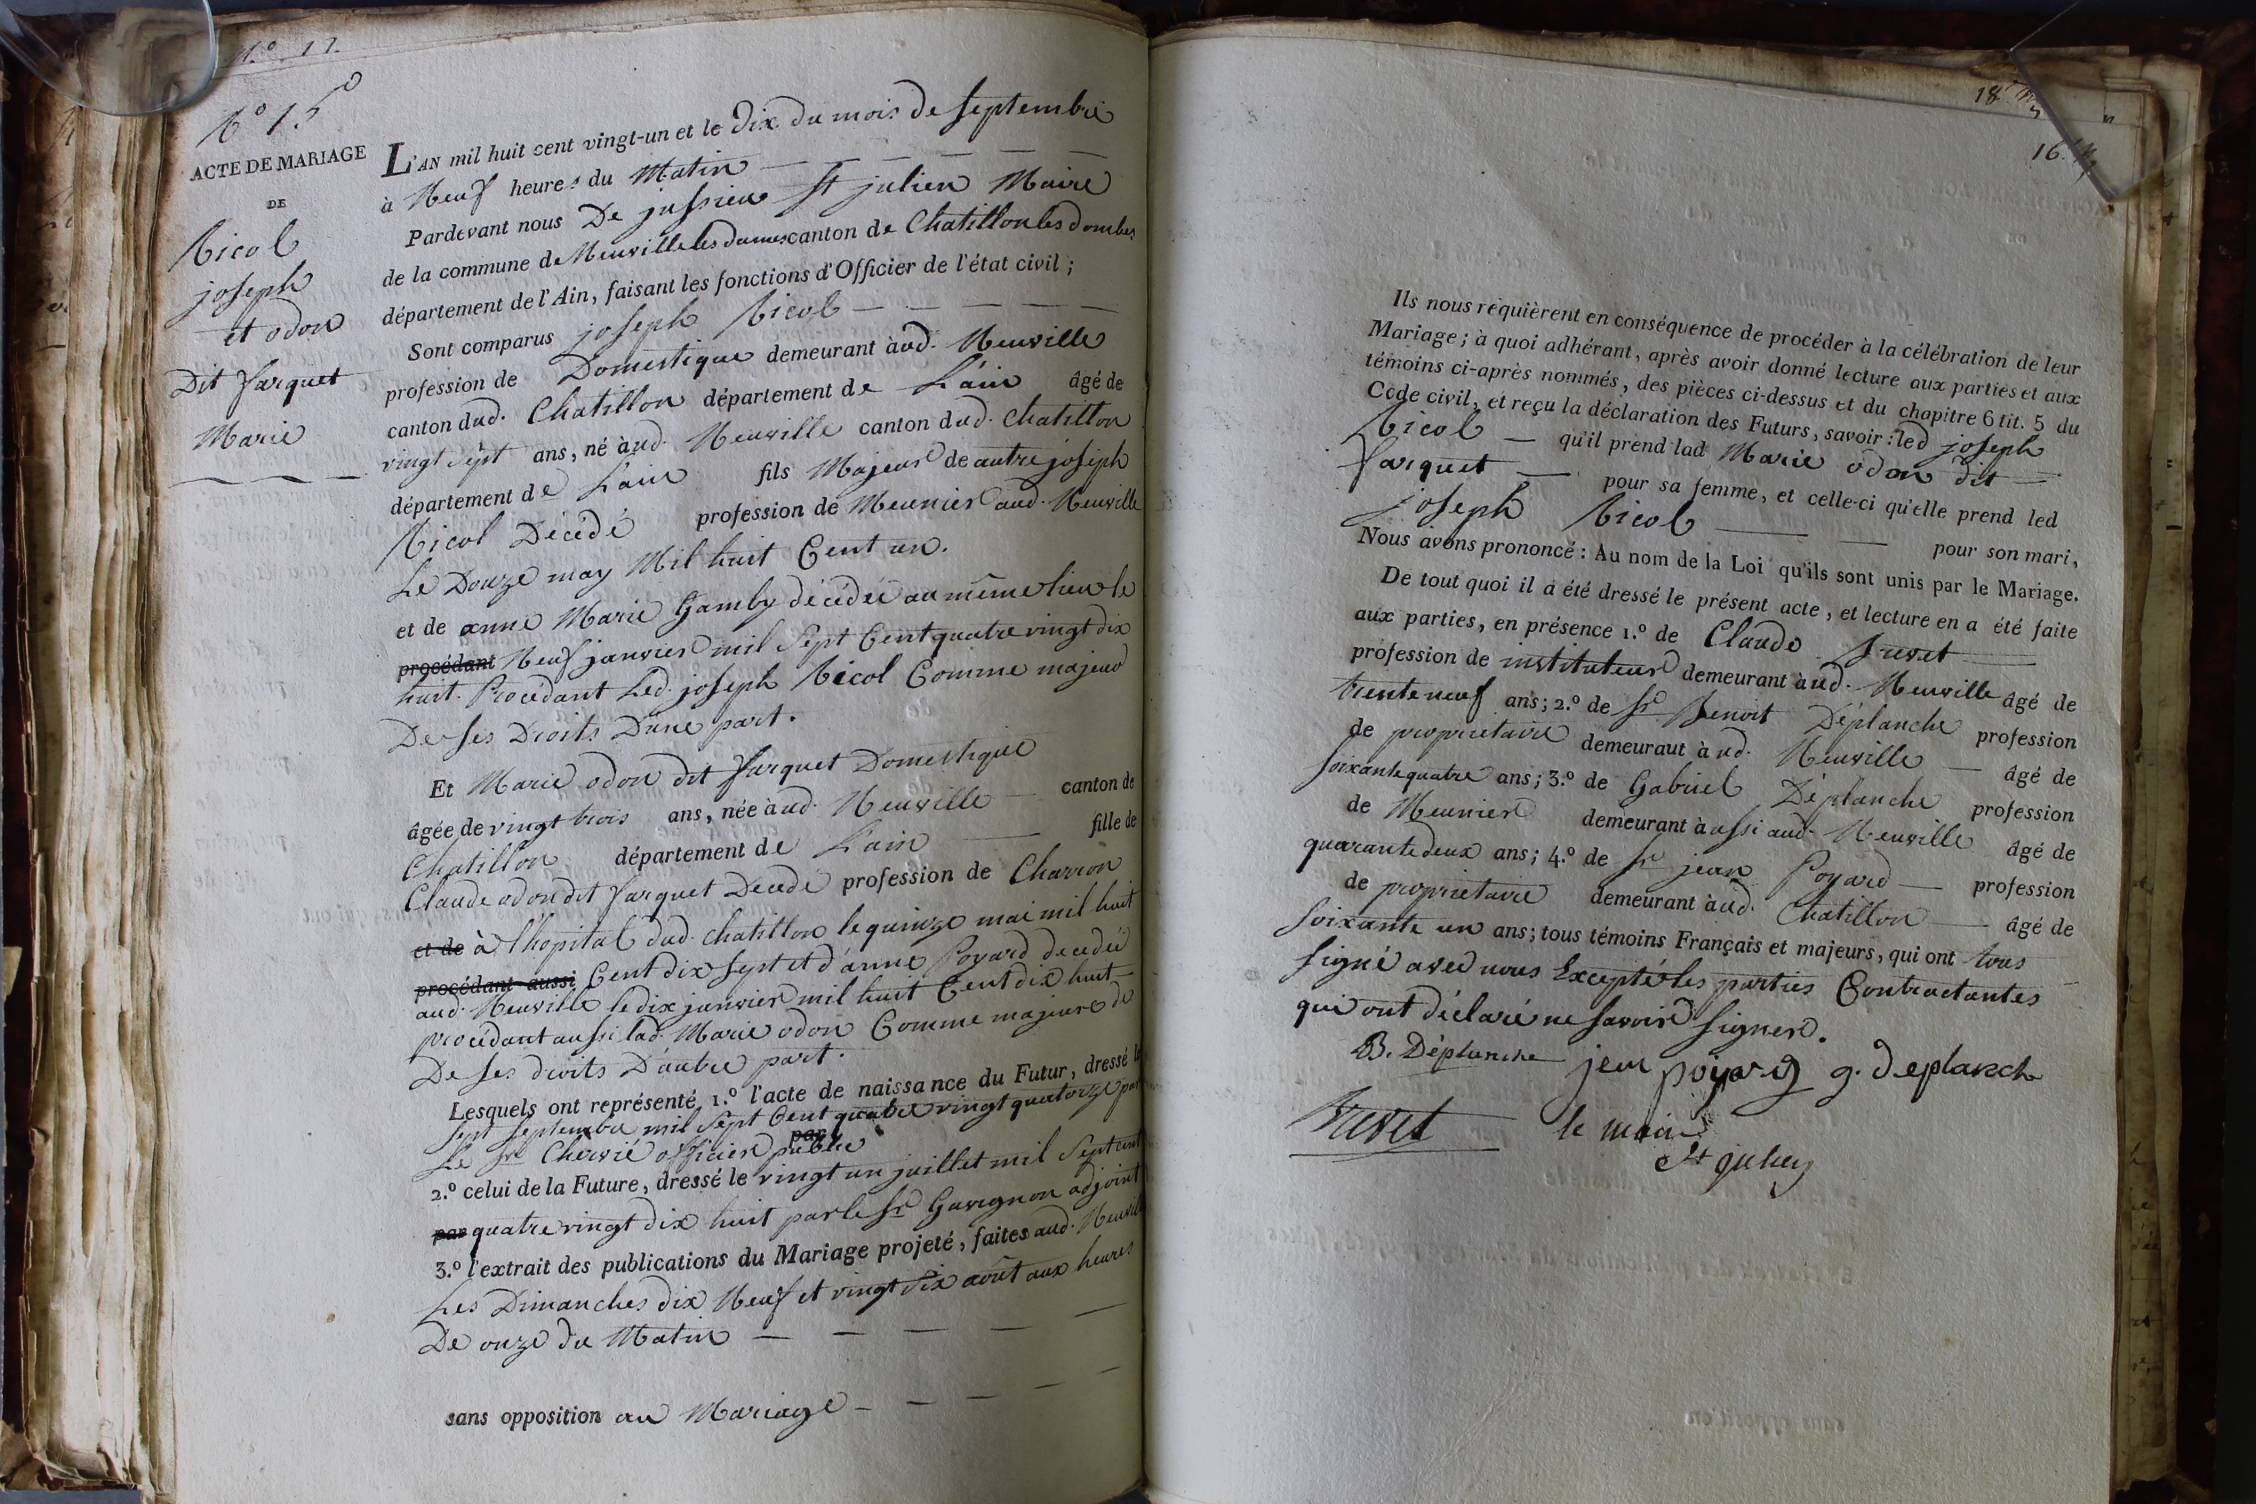 N.º 17.
Nº 15
ACTE DE MARIAGE
DE
Nicol
joseph
et odon
Dit farquet
Marie
L'AN mil huit cent vingt-un et le Dix du mois de septembre
à Neuf heures du Matin
Pardevant nous De jussieu St julien Maire
de la commune de Neuville les dames canton de Chatillon les dombes
département de l'Ain, faisant les fonctions d'Officier de l'état civil ;
Sont comparus joseph Nicol
profession de Domestique demeurant àud. Neuville
canton dud. Chatillon département de L'ain âgé de
vingt sept ans, né àud. Neuville canton dud. Chatillon
département de L'ain fils Majeur de autre joseph
Nicol Décédé profession de Meunier aud. Neuville
Le Douze may Mil huit Cent un.
et de anne Marie Gamby décédée au même lieu le
procédant Neuf janvier mil sept Cent quatre vingt dix
huit. Procédant Led. joseph Nicol Comme majeur
De ses Droits D'une part.
Et Marie odon dit farquet Domestique
âgée de vingt trois ans, née àud. Neuville canton de
Chatillon département de L'ain fille de
Claude odon dit farquet Décédé profession de Charron
et de à l'hopital dud. chatillon le quinze mai mil huit
procédant aussi Cent dix sept et d'anne Poyard decedée
aud. Neuville le dix janvier mil huit Cent dix huit
procédant aussi lad. Marie odon Comme majeure de
De ses droits D'autre part.
Lesquels ont représenté 1.º l'acte de naissance du Futur, dressé le
sept septembre mil sept Cent quatre vingt quatorze par
par
Le Sr. Chervié officier public
2.º celui de la Future, dressé le vingt un juillet mil sept cent
par quatre vingt dix huit par le Sr. Gavignon adjoint
3.º l'extrait des publications du Mariage projeté, faites aud. Neuville
Les Dimanches dix Neuf et vingt six août aux heures
De onze du Matin
sans opposition au Mariage
18
16.
Ils nous requièrent en conséquence de procéder à la célébration de leur
Mariage ; à quoi adhérant, après avoir donné lecture aux parties et aux
témoins ci-après nommés, des pièces ci-dessus et du chapitre 6 tit. 5 du
Code civil, et reçu la déclaration des Futurs, savoir : led joseph
Nicol qu'il prend lad Marie odon dit
farquet pour sa femme, et celle-ci qu'elle prend led
joseph Nicol pour son mari,
Nous avons prononcé : Au nom de la Loi qu'ils sont unis par le Mariage.
De tout quoi il a été dressé le présent acte, et lecture en a été faite
aux parties, en présence 1.º de Claude Frevet
profession de instituteur demeurant àud. Neuville âgé de
trente neuf ans ; 2.º de Sr. Benoit Déplanche profession
de propriétaire demeuraut à ud. Neuville âgé de
soixante quatre ans ; 3.º de Gabriel Déplanche profession
de Meunier demeurant àussi aud. Neuville âgé de
quarante deux ans ; 4.º de Sr jean Poyard profession
de propriétaire demeurant àud. Chatillon âgé de
soixante un ans ; tous témoins Français et majeurs, qui ont tous
signé avec nous Excepté les parties Contractantes
qui ont déclaré ne savoir signer.
B. Déplanche jean poyard g. deplanche
Frevet le maire
St julien